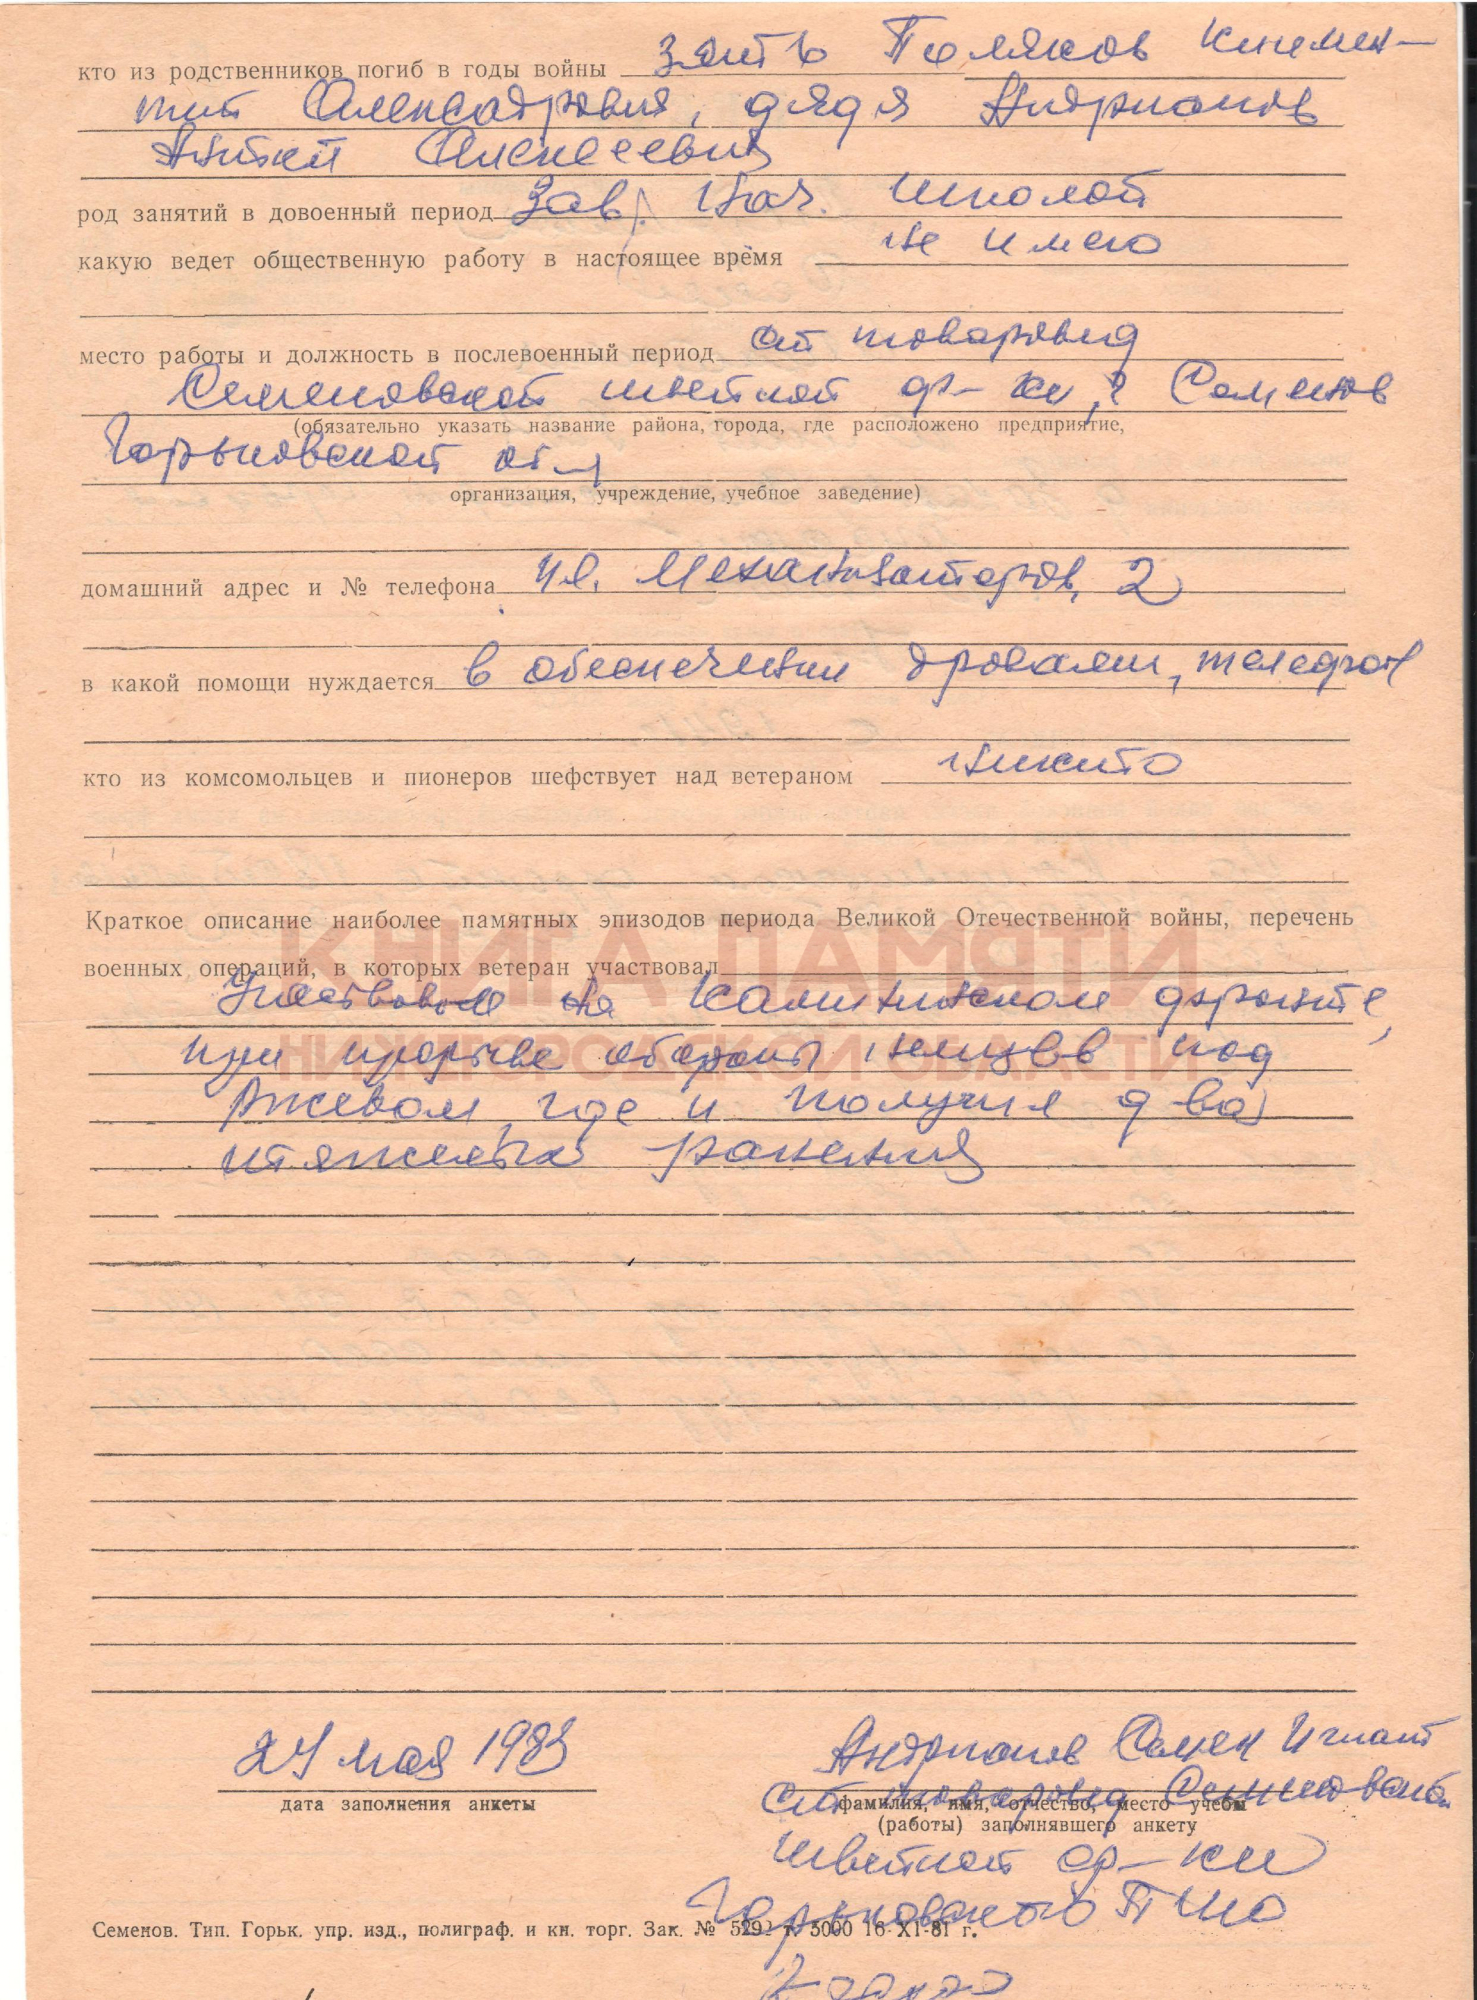 кто из родственников погиб в годы войны зять Поляков Климен-
тий Александрович, дядя Андрианов
Антон Алексеевич
род занятий в довоенный период зав. нач. школой
какую ведет общественную работу в настоящее время не имею
место работы и должность в послевоенный период ст товаровед
Семеновской швейной ф-ки, г Семенов
(обязательно указать название района, города, где расположено предприятие,
Горьковской обл
организация, учреждение, учебное заведение)
домашний адрес и № телефона ул. Механизаторов, 2
в какой помощи нуждается в обеспечении дровами, телефон
кто из комсомольцев и пионеров шефствует над ветераном никто
Краткое описание наиболее памятных эпизодов периода Великой Отечественной войны, перечень
военных операций, в которых ветеран участвовал
КНИГА ПАМЯТИ
Участвовал на Калининском фронте,
НИЖЕГОРОДСКОЙ ОБЛАСТИ
при прорыве обороны немцев под
Ржевом, где и получил два
тяжелых ранения
24 мая 1983
дата заполнения анкеты
Андрианов Семен Игнат
ст товаровед Семеновской
фамилия, имя, отчество, место учебы
(работы) заполнявшего анкету
швейной ф-ки
Горьковского ПШО
Семенов. Тип. Горьк. упр. изд., полиграф. и кн. торг. Зак. № 5292 т. 5000 16-XI-81 г.